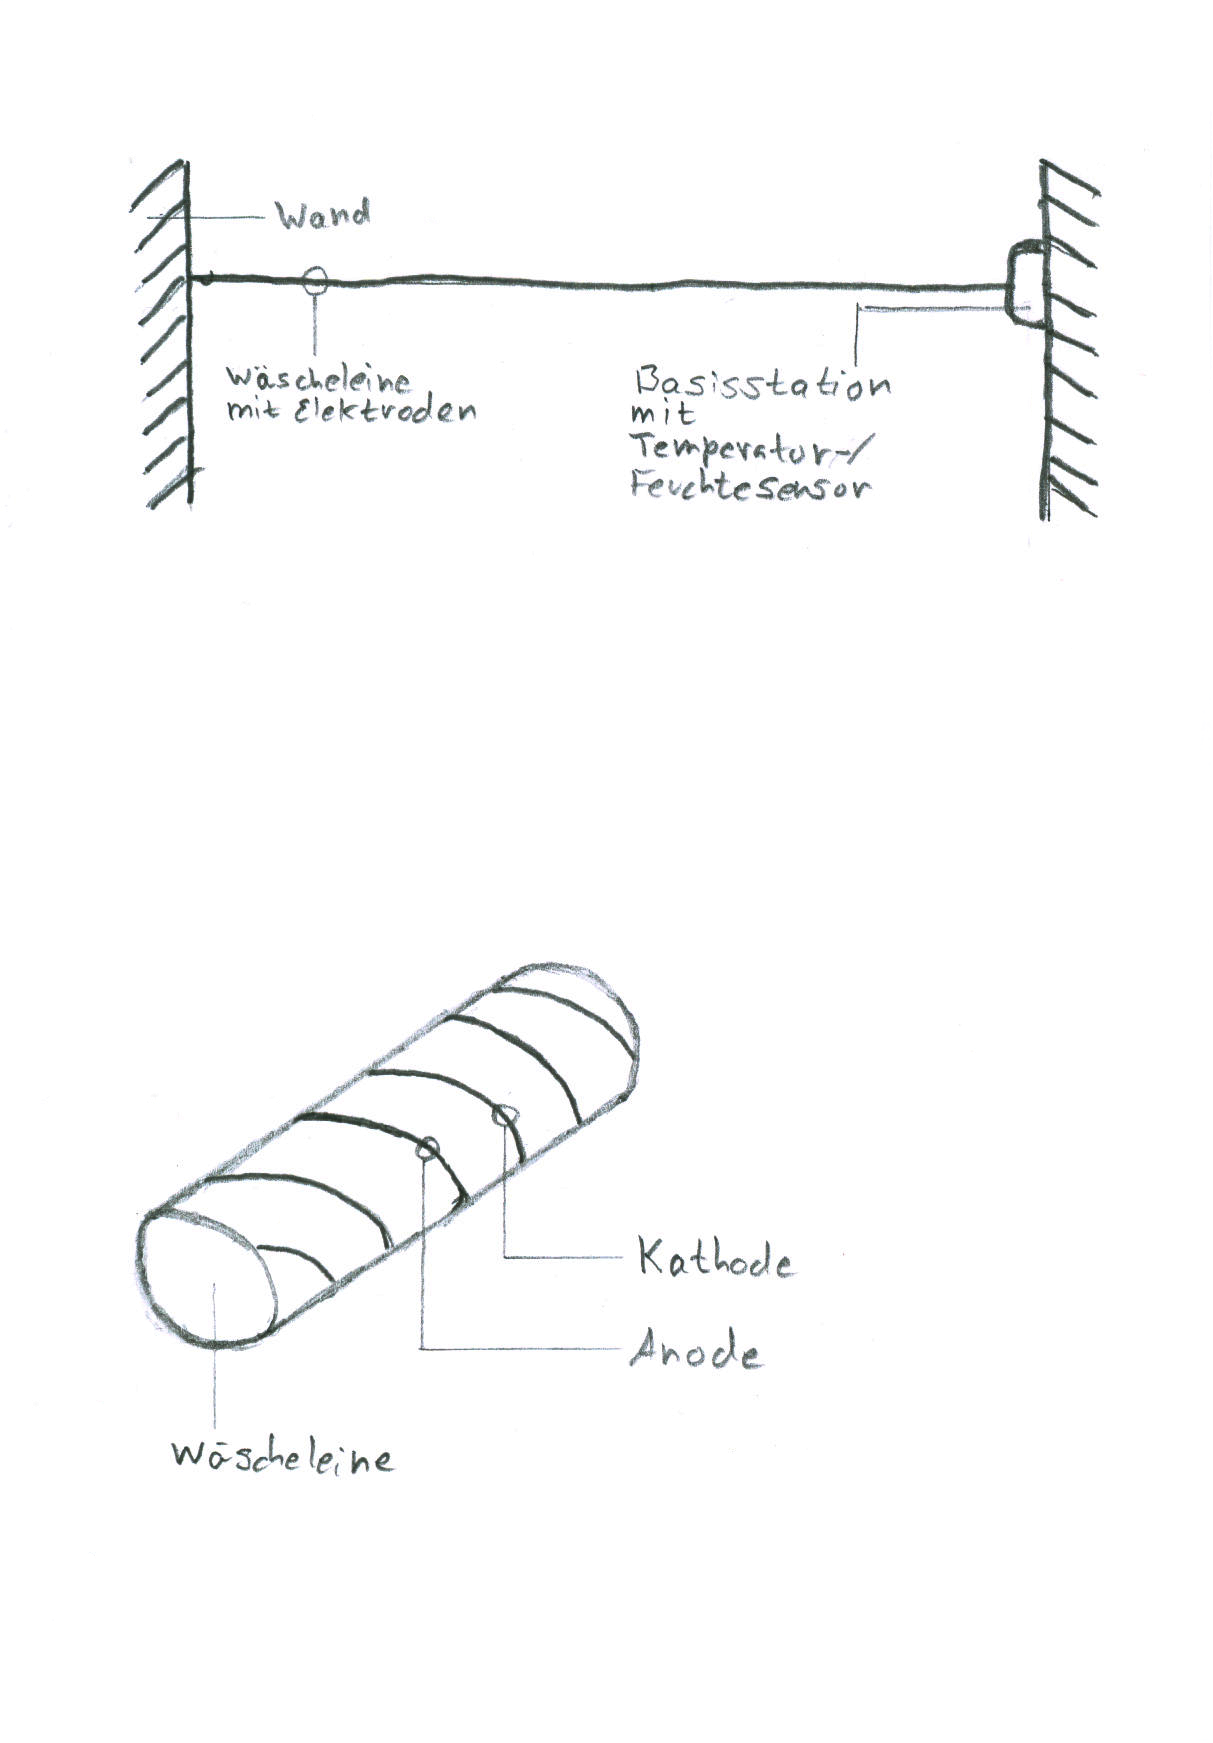 Wand
Wäscheleine
mit Elektroden
Basisstation
mit
Temperatur-/
Feuchtesensor
Kathode
Anode
Wäscheleine